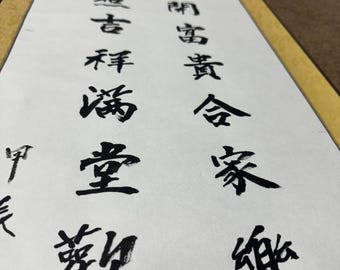 開富貴合家樂
吉祥滿堂歡
甲